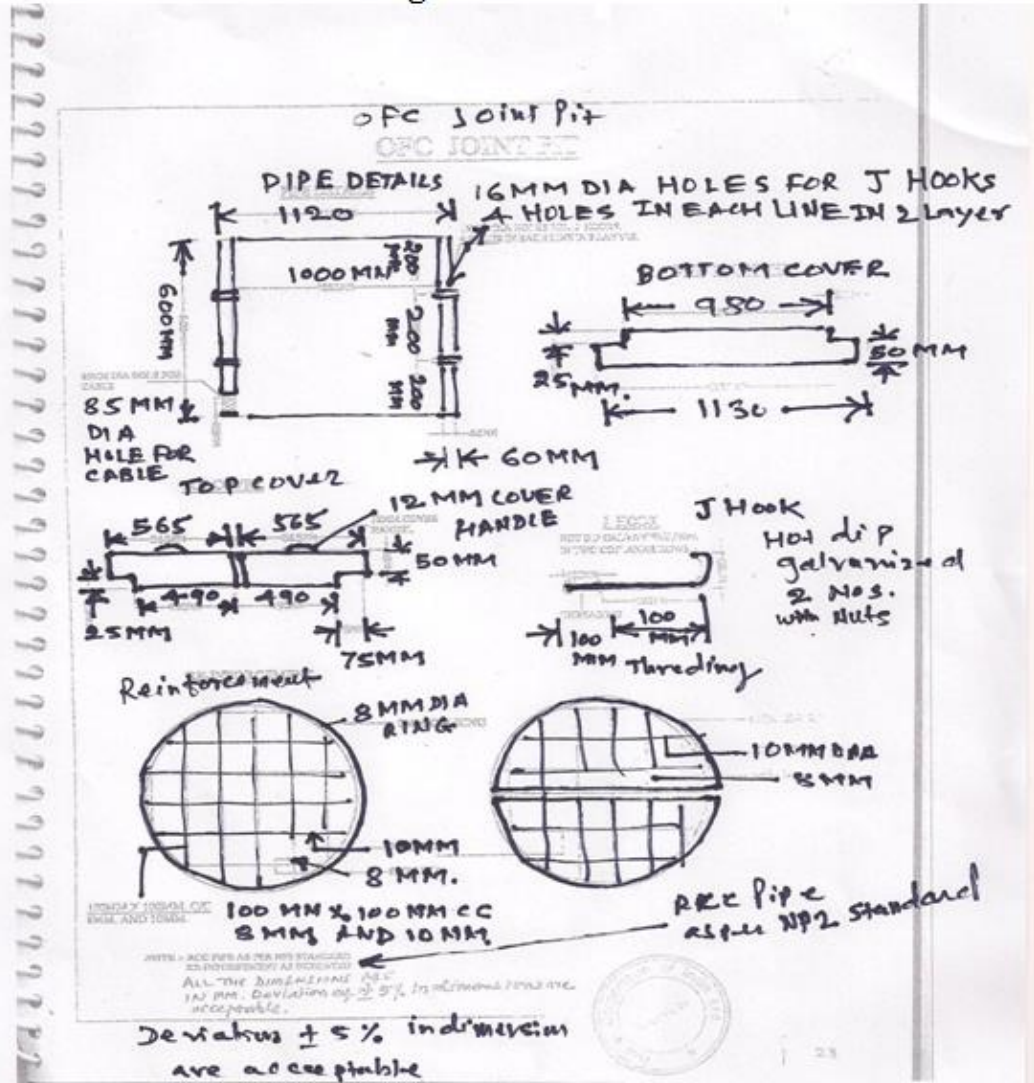 OFC Joint Pit
OFC JOINT PIT
PIPE DETAILS
1120
16MM DIA HOLES FOR J HOOKS
4 HOLES IN EACH LINE IN 2 Layer
600MM
1000MM
200 MM
200 MM
200 MM
85MM
DIA
HOLE FOR
CABLE
60MM
BOTTOM COVER
980
25MM.
50MM
1130
TOP COVER
565
565
12 MM COVER
HANDLE
50MM
490
490
25MM
75MM
J HOOK
J HOOK
Hot dip
galvanized
2 Nos.
with Nuts
100
MM
100
MM
Threding
Reinforcement
8 MM DIA
RING
10MM
8 MM.
100 MM X 100 MM CC
8 MM, AND 10 MM.
10MM DIA
8MM
RCC Pipe
as per NP2 Standard
ALL THE DIMENSIONS ARE
IN MM. Deviation of ± 5% in dimensions are
acceptable.
Deviations ± 5% in dimension
are acceptable
23